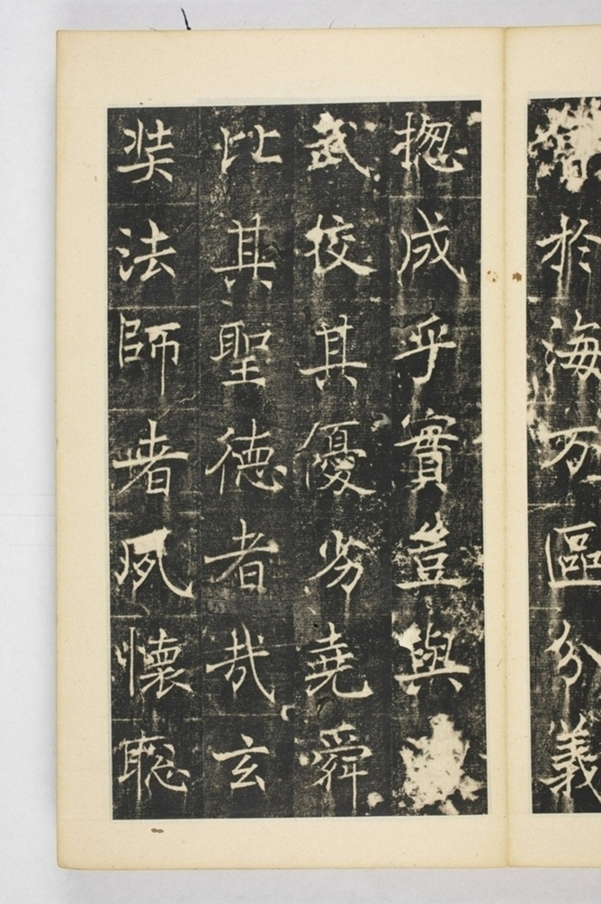 於海万區分義
揔成乎實豈與
武挍其優劣堯舜
比其聖德者哉玄
奘法師者夙懷聦